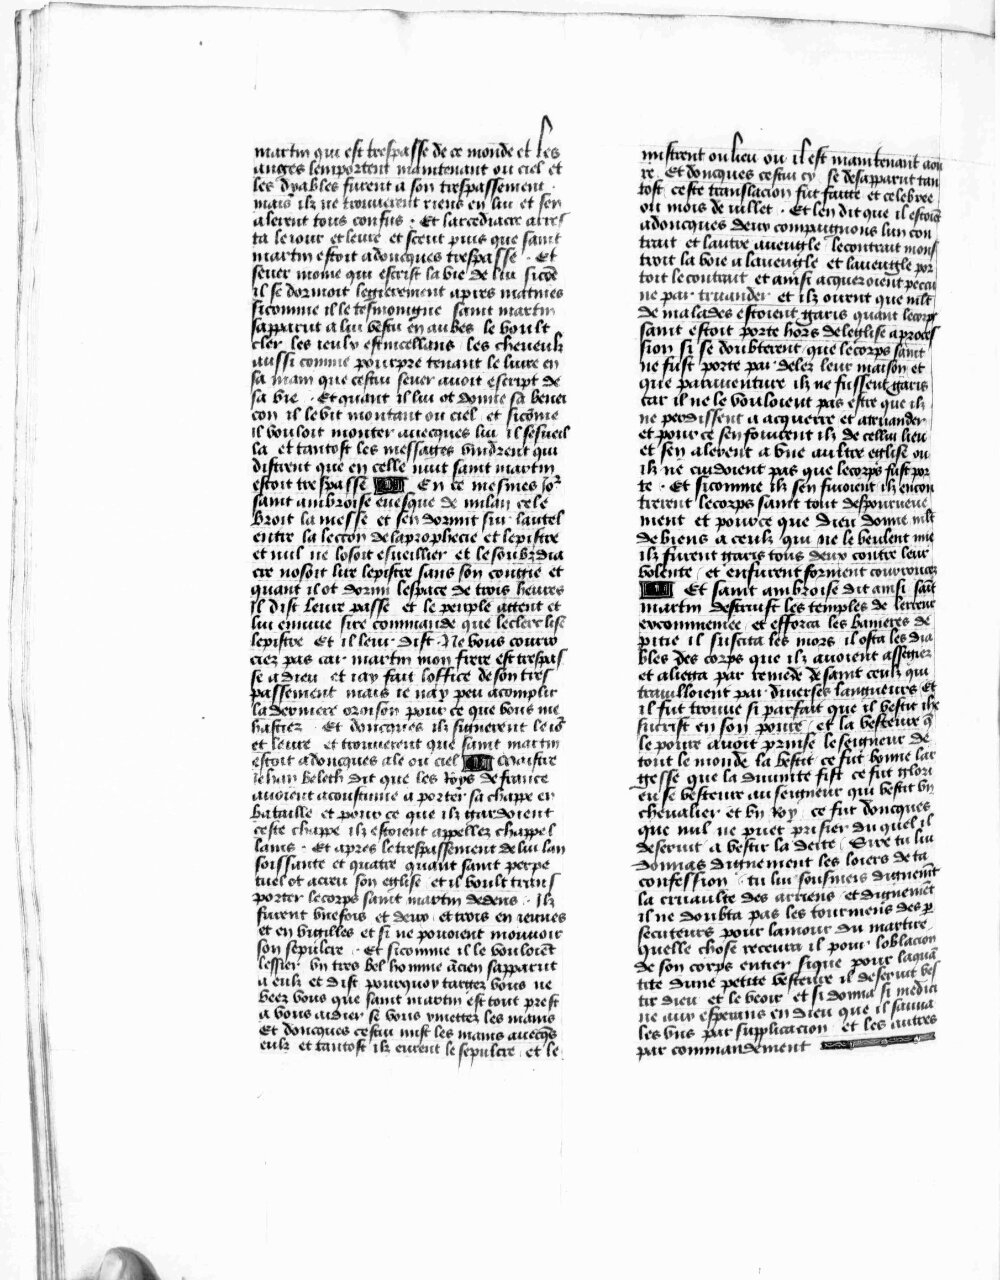 martin qui est trespasse de ce monde et les
anges lemportent maintenant ou ciel et
les dyables furent a son trespassement
mais ilz ne trouverent riens en lui et sen
alerent tous confus · Et larcediacre arres
ta le iour et leure et sceut puis que saint
martin estoit adoncques trespasse · Et
sever moine qui escrist la vie de lui sicōe
il se dormoit legierement apres matines
sicomme il le tesmoingne saint martin
sapparut a lui vestu en aubes le voult
cler les ieulx estincellans les cheveulx
aussi comme pourpre tenant le livre en
sa main que cestui sever avoit escript de
sa vie · Et quant il lui ot donne sa benei
con il le vit montant ou ciel et sicōme
il vouloit monter avecques lui il sesveil
la et tantost les messages vindrent qui
distrent que en celle nuit saint martin
estoit trespasse En ce mesmes ior
saint ambroise evesque de milan cele
broit la messe et sen dormit sur lautel
entre la lecon de la prophecie et lepistre
et nul ne losoit esveillier et le soubzdia
cre nosoit lire lepistre sans son congie et
quant il ot dormi lespace de trois heures
Il dist leure passe et le peuple attent et
lui ennuie sire commande que le clerc lise
lepistre Et il leur dist · Ne vous courou
ciez pas car martin mon frere est trespas
se a dieu et iay fait loffice de son tres
passement mais ie nay peu acomplir
la derniere oroison pour ce que vous me
hastiez · Et doncques ilz signerent le iō
et leure et trouverent que saint martin
estoit adoncques ale ou ciel Maistre
iehan beleth dit que les Roys de france
avoient acoustume a porter sa chappe en
bataille et pour ce que ilz gardoient
ceste chappe ilz estoient appellez chappel
lains · Et apres le trespassement de lui lan
soissante et quatre quant saint perpe
tuel ot acreu son eglise et il voult trans
porter le corps saint martin dedens · Ilz
furent une fois et deux et trois en ieunes
et en vigilles et si ne povoient mouvoir
son sepulcre · Et sicomme il le vouloiēt
lessier un tres bel homme ācien sapparut
a eulx et dist pourquoy targez vous ne
veez vous que saint martin est tout prest
a vous aidier se vous y mettez les mains
Et doncques cestui mist les mains avecq̄s
eulx et tantost ilz eurent le sepulcre et le
mistrent ou lieu ou il est maintenant aou
re · Et doncques cestui cy se desapparut tan
tost ceste translacion fut faitte et celebree
ou mois de iuillet · Et len dit que il estoiēt
adoncques deux compaignons lun con
trait et lautre aveugle le contrait mons
troit la voie a laveugle et laveugle por
toit le contrait et ainsi acqueroient pecu
ne par truander et ilz ourent que mlt
de malades estoient garis quant le corps
saint estoit porte hors de leglise a proces
sion si se doubterent que le corps saint
ne fust porte par delez leur maison et
que paraventure ilz ne fussent garis
car il ne le vouloient pas estre que ilz
ne perdissent a acquerre et a truander
et pour ce senfouirent ilz de cellui lieu
et sen alerent a une aultre eglise ou
ilz ne cuidoient pas que le corps fust por
te · Et sicomme ilz sen fuioient ilz encon
trerent le corps saint tout despourveue
ment et pour ce que dieu donne mlt
de biens a ceulx qui ne le veulent mie
ilz furent garis tous deux contre leur
volente et en furent forment courroucez
Et saint ambroise dit ainsi saīt
martin destruist les temples de lerreur
excommeniee et efforca les banieres de
pitie il suscita les mors il osta les dia
bles des corps que ilz avoient assegiez
et aliega par remede de saint ceulx qui
travilloient par diverses langueurs Et
il fut trouve si parfait que il vestit ihe
sucrist en son povre et la vesteure q̄
le povre avoit prinse le seigneur de
tout le monde la vestit ce fut bonne lar
gesse que la divinite fist ce fut glori
eu se vesteure au seigneur qui vestit un
chevalier et un Roy ce fut doncques
que nul ne puet prisier du quel il
deservit a vestir la deite · Sire tu lui
donnas dignement les loiers de ta
confession tu lui sousmeis dignemēt
la cruaulte des arriens et dignemēt
il ne doubta pas les tourmens des p̄
secuteurs pour lamour du martire
Quelle chose recevra il pour loblacion
de son corps entier si que pour la quā
tite dune petite vesteure il deservit ves
tir dieu et le veoir et si donna si medici
ne aux esperans en dieu que il sauva
les uns par supplicacion et les autres
par commandement